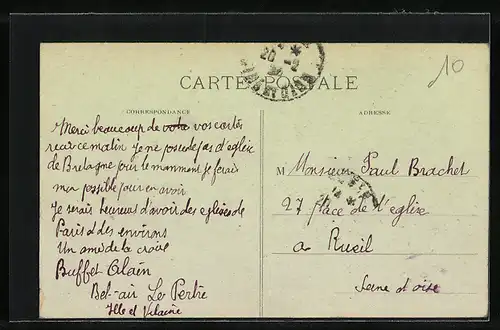 10
20
CARTE POSTALE
CORRESPONDANCE
ADRESSE
Merci beaucoup de vos cartes
recu ce matin je ne posede pas d'eglise
de Bretagne pour le momment je ferais
mon possible pour en avoir
Je serais heureux d'avoir des eglises de
Paris et des environs
Un ami de la croix
Buffet Alain
Bel-air Le Pertre
Ille et Vilaine
M Monsieur Paul Brachet
27 place de l'eglise
a Rueil
Seine et oise